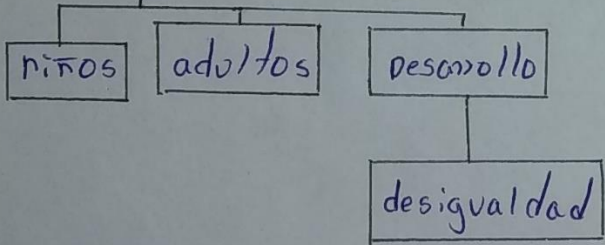 niños
adultos
Desarrollo
desigualdad